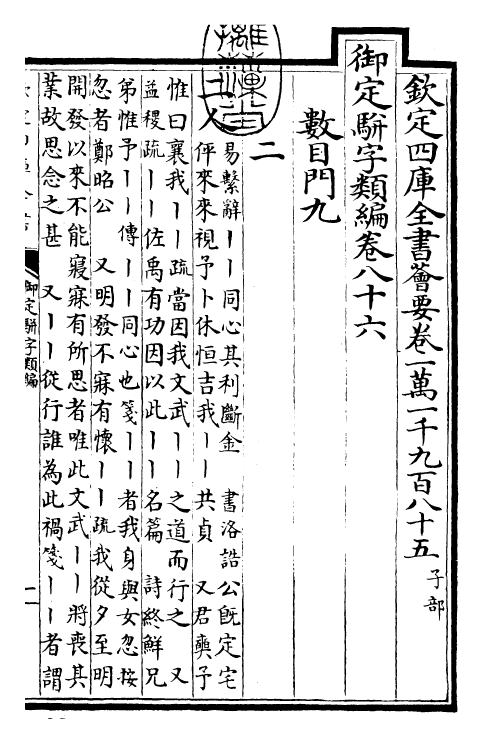 欽定四庫全書薈要卷一萬一千九百八十五 子部
御定駢字類編卷八十六
數目門九
二
二人 易繫辭丨丨同心其利斷金 書洛誥公既定宅
伻來來視予卜休恒吉我丨丨共貞 又君奭予
惟曰襄我丨丨疏當因我文武丨丨之道而行之 又
益稷疏丨丨佐禹有功因以此丨丨名篇 詩終鮮兄
弟惟予丨丨傳丨丨同心也箋丨丨者我身與女忽按
忽者鄭昭公 又明發不寐有懷丨丨疏我從夕至明
開發以來不能寢寐有所思者唯此文武丨丨將喪其
業故思念之甚 又丨丨從行誰為此禍箋丨丨者謂
御定駢字類編
一